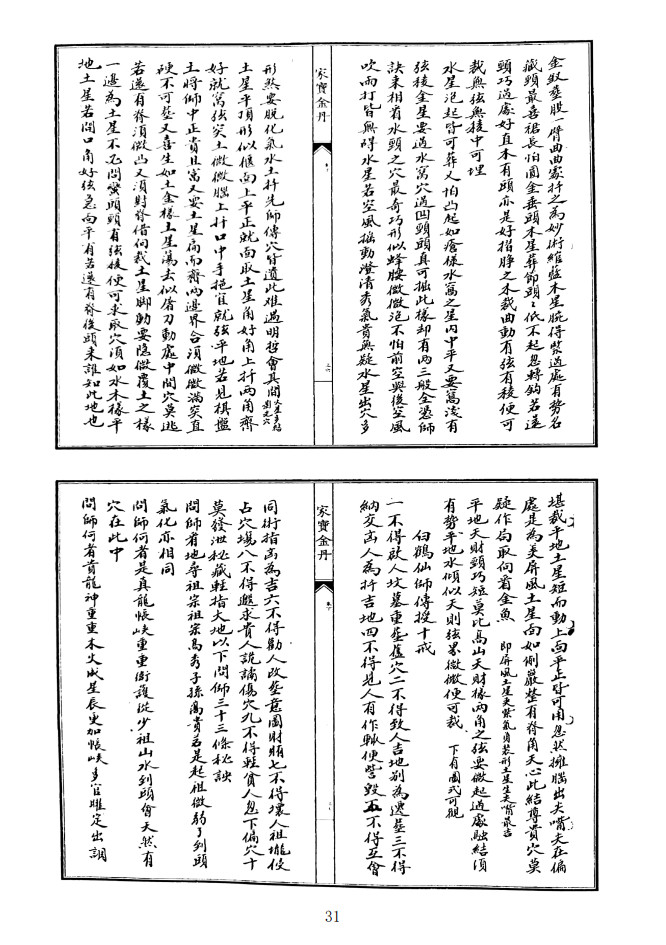 金釵壟股一臂曲曲家扦之為妙術維籃木星腕得緊過處有勢名
藏頸最喜裙長怕圓金垂頭木星葬節頭頭低不起忽轉鈎若逆
頸巧過處好直木有頭亦是好指脖之木裁曲動有弦有稜便可
裁無弦無稜中可埋
水星泡起皆可葬又怕凸起如瘡樣水窩之星內中平又要篤淺有
弦稜金星要過水窩穴過凹頸頭真可拙此樣却有兩三般全憑師
訣束相看水頸之穴最奇巧形似蜂腰微微泡不怕前空與後空風
吹雨打皆無碍水星若空風搖動澄清秀氣貴無疑水星出穴多
家寶金丹
形煞要脫化氣水土扦先師傳穴皆遺此难過明哲會具聞
土星平頂形似偃面上平正就面取土星角好角上扦兩角齊
好就窩弦突土微微腦上扦口中手拖宜就弦平地若見棋盤
土將師中正貴且富又要土星扁而齊兩邊界合須微微滿突直
硬不可塟又喜生如土金樣土星蕩去似眉刀動處中間穴莫逃
若還有脊須微凸又須財脊借向裁土星脚動要隐微覆土之樣
一邊為土星不必問蠻頭頸有弦稜便可求取穴須如水木樣平
地土星若問口角好弦急向平有若還有脊後頭來誰知此地也
堪裁平地土星短而動上面平正皆可用忽然擁腦出尖嘴尖在偏
處是為美屏風土星面如側嚴整有脊角天心此結尊貴穴莫
疑作局取向着金魚 即屏風土星夾紫氣負裝形土星生尖嘴最吉
平地天財頸巧短莫比高山天財樣兩角之弦要微起過處融結須
有勢平地水傾似天則弦累微微便可裁 下有圖式可觀
白鶴仙師傳授十戒
一不得欺人坟墓重塟盧穴二不得致人吉地别為遷塟三不得
納交凶人為扦吉地四不得見人有作輒便訾毀五不得互會
家寶金丹
同術指凶為吉六不得勸人改塟意圖財賄七不得壞人祖壠侵
占穴塲八不得趨求貴人詭譎傷穴九不得輕貧人忽下偏穴十
莫發泄秘藏輕指大地以下問師三十三條秘訣
問師看地尋祖宗祖宗高秀子孫蕩貴若是起祖微弱了到頭
氣化亦相同
問師何者是真龍帳峽重重衛護從少祖山水到頭會天然有
穴在此中
問師何者貴龍神重重木火成星辰更加帳峽多官雕定出調
31